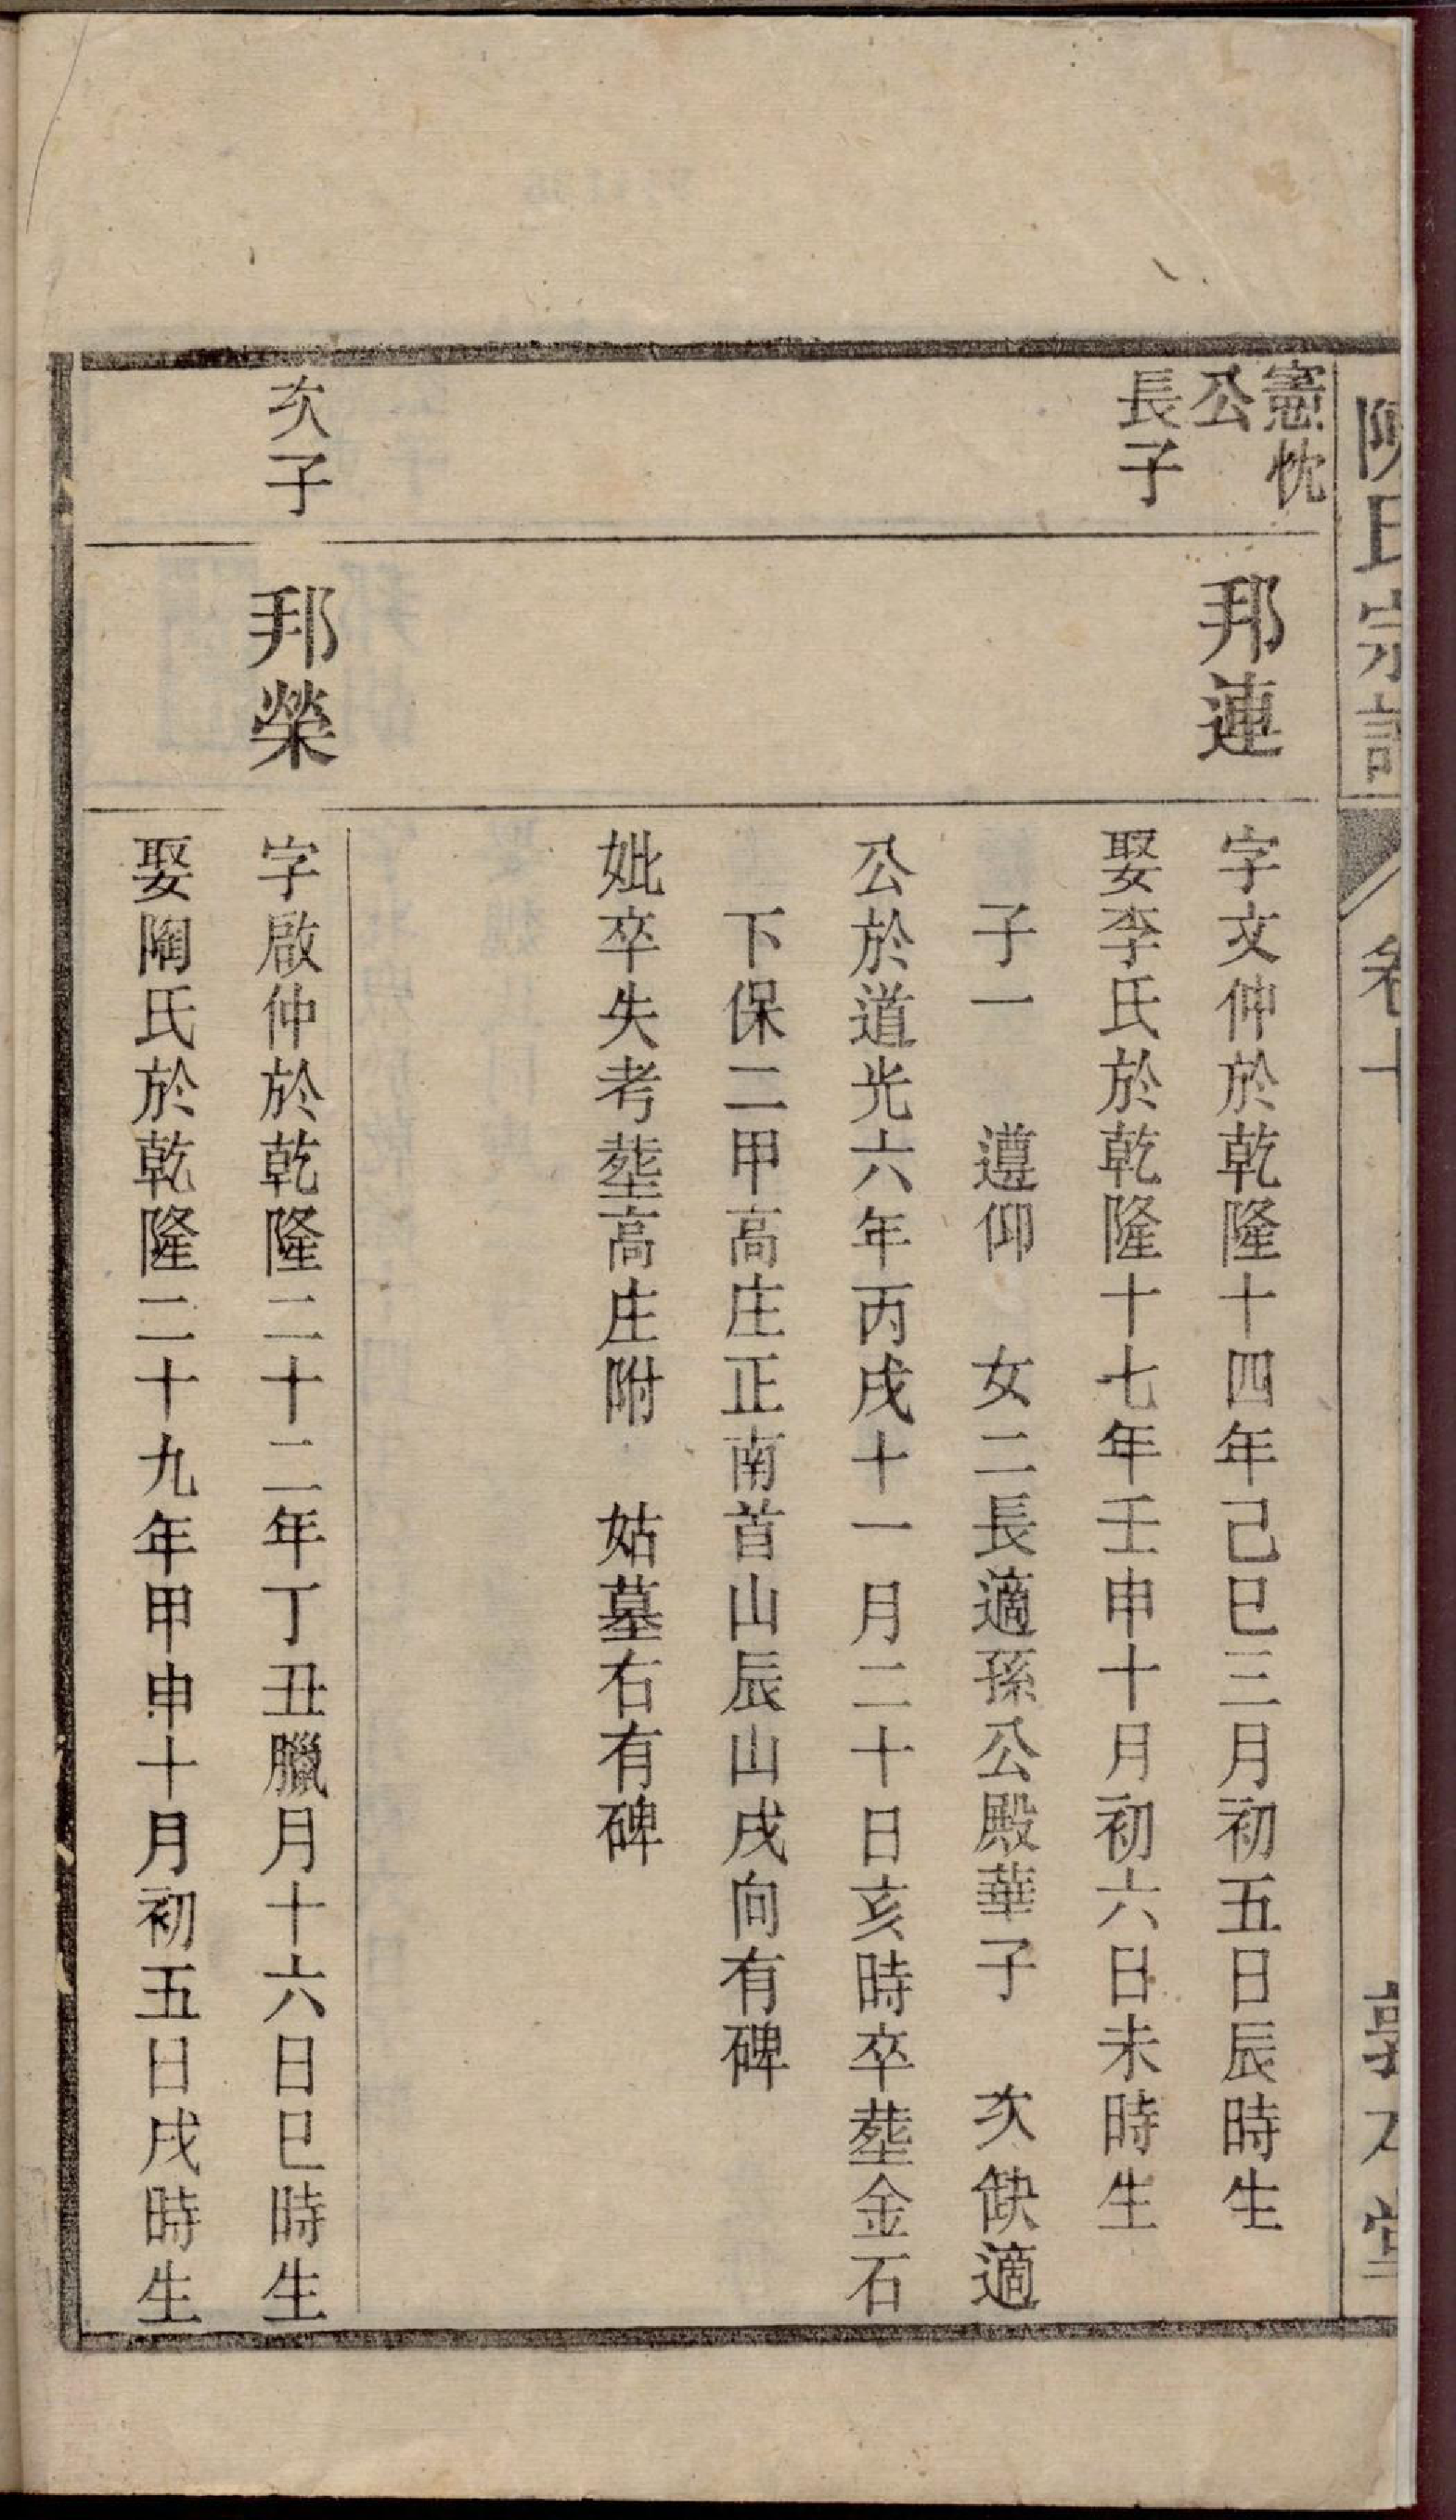 陳氏宗譜
卷十
敦本堂
憲忱
公
長子
邦連
字文仲於乾隆十四年己巳三月初五日辰時生
娶李氏於乾隆十七年壬申十月初六日未時生
子一 遵仰 女二長適孫公殿華子 次缺適
公於道光六年丙戌十一月二十日亥時卒塟金石
下保二甲高庄正南首山辰山戌向有碑
妣卒失考塟高庄附 姑墓右有碑
次子
邦榮
字啟仲於乾隆二十二年丁丑臘月十六日巳時生
娶陶氏於乾隆二十九年甲申十月初五日戌時生